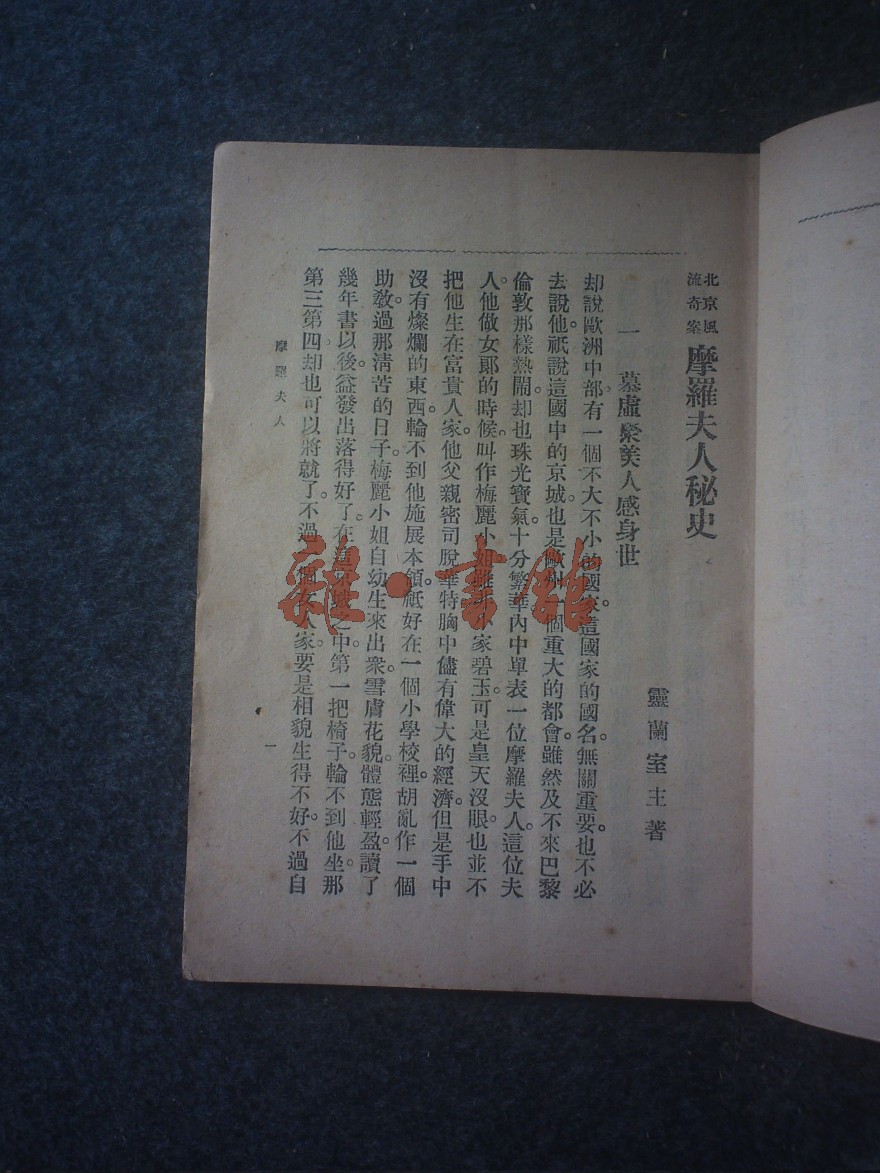 北京風
流奇案
摩羅夫人秘史
靈蘭室主著
一　慕虛榮美人感身世
却說歐洲中部。有一個不大不小的國家。這國家的國名。無關重要。也不必
去說他。祇說這國中的京城。也是歐州一個重大的都會。雖然及不來巴黎
倫敦那樣熱鬧。却也珠光寶氣。十分繁華。內中單表一位摩羅夫人。這位夫
人。他做女郞的時候。叫作梅麗小姐。雖小家碧玉。可是皇天沒眼。也並不
把他生在富貴人家。他父親密司脫華特。胸中儘有偉大的經濟。但是手中
沒有燦爛的東西。輪不到他施展本領。祇好在一個小學校裡。胡亂作一個
助敎。過那淸苦的日子。梅麗小姐自幼生來出衆。雪膚花貌。體態輕盈。讀了
幾年書以後。益發出落得好了。在這京城之中。第一把椅子。輪不到他坐。那
第三第四却也可以將就了。不過一個女人家。要是相貌生得不好。不過自
摩羅夫人
一
雜·書館